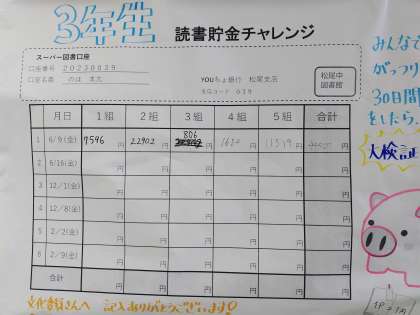 3年生 読書貯金チャレンジ
スーパー図書口座
口座番号 20230639
口座名義
YOUちょ銀行 松尾支店
支店コード 039
松尾中
図書館
月日 1組 2組 3組 4組 5組 合計
1 6/9(金) 7546円 22902円 806円 円 円 円
2 6/16(金) 円 円 円 円 円 円
3 12/1(金) 円 円 円 円 円 円
4 12/8(金) 円 円 円 円 円 円
5 2/2(金) 円 円 円 円 円 円
6 2/9(金) 円 円 円 円 円 円
合計 円 円 円 円 円 円
みんなで
がっつり
30日間
をしたら、
大検証
文化委員さんへ 記入ありがとうございます!
1P=1円